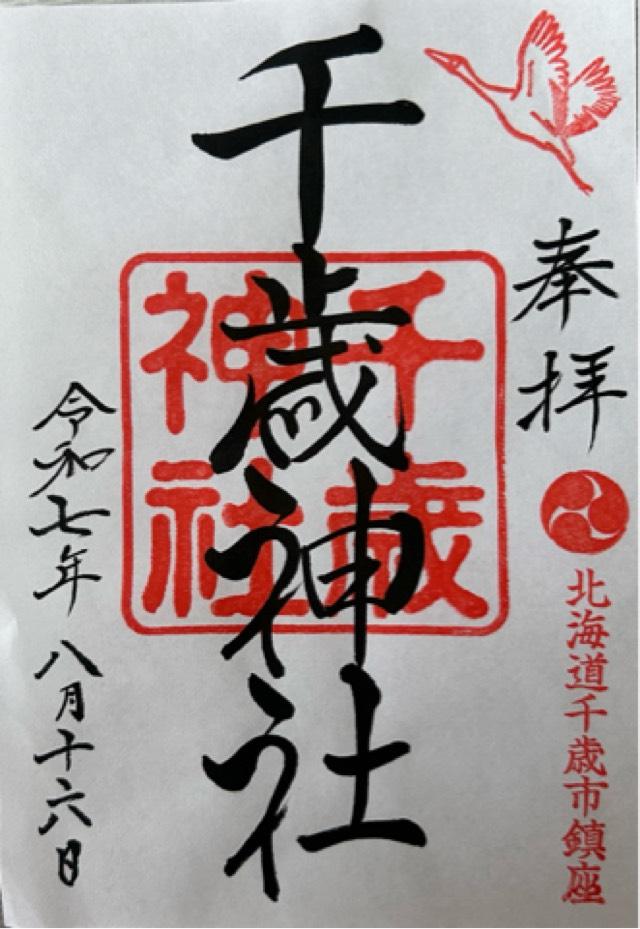 奉拝
北海道千歳市鎮座
千歳神社
千歳
神社
令和七年 八月十六日